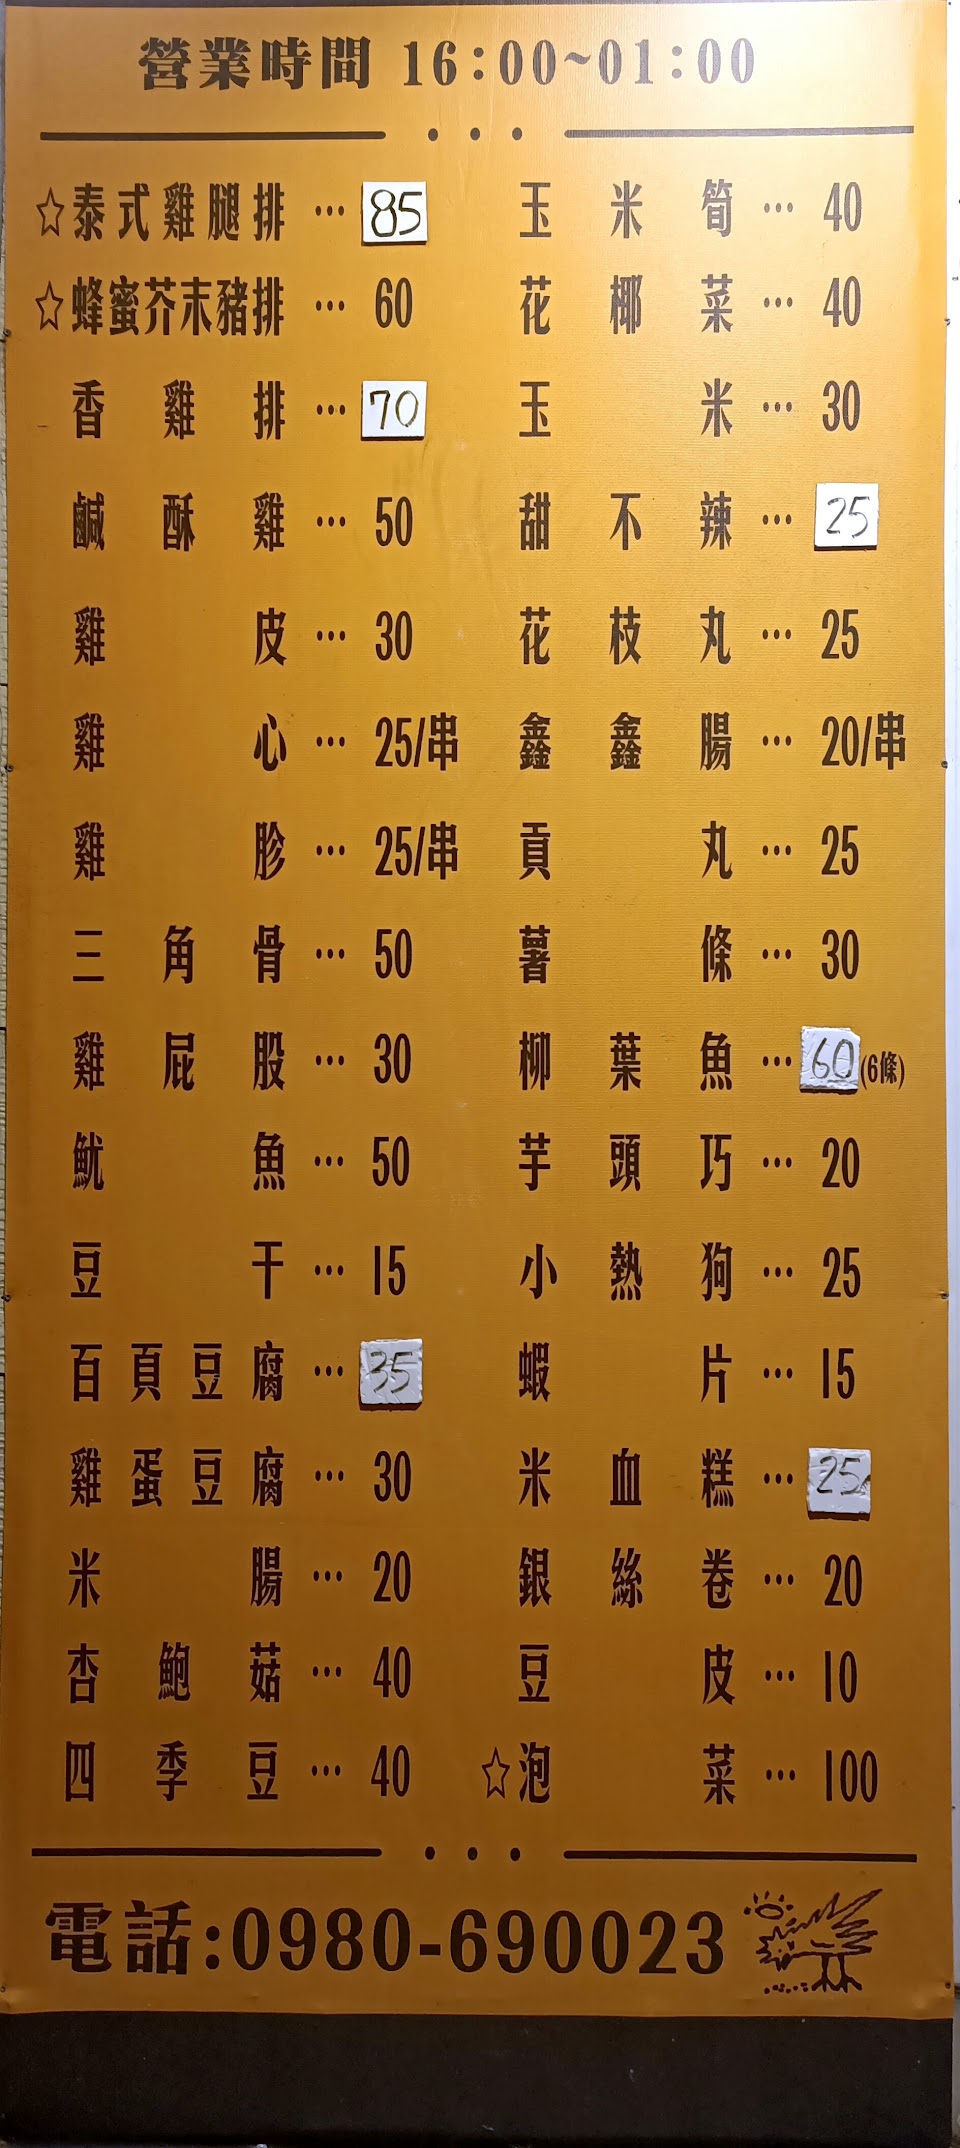 營業時間 16:00~01:00
☆泰式雞腿排…85
☆蜂蜜芥末豬排…60
香雞排…70
鹹酥雞…50
雞皮…30
雞心…25/串
雞胗…25/串
三角骨…50
雞屁股…30
魷魚…50
豆干…15
百頁豆腐…35
雞蛋豆腐…30
米腸…20
杏鮑菇…40
四季豆…40
玉米筍…40
花椰菜…40
玉米…30
甜不辣…25
花枝丸…25
鑫鑫腸…20/串
貢丸…25
薯條…30
柳葉魚…60(6條)
芋頭巧…20
小熱狗…25
蝦片…15
米血糕…25
銀絲卷…20
豆皮…10
☆泡菜…100
電話:0980-690023